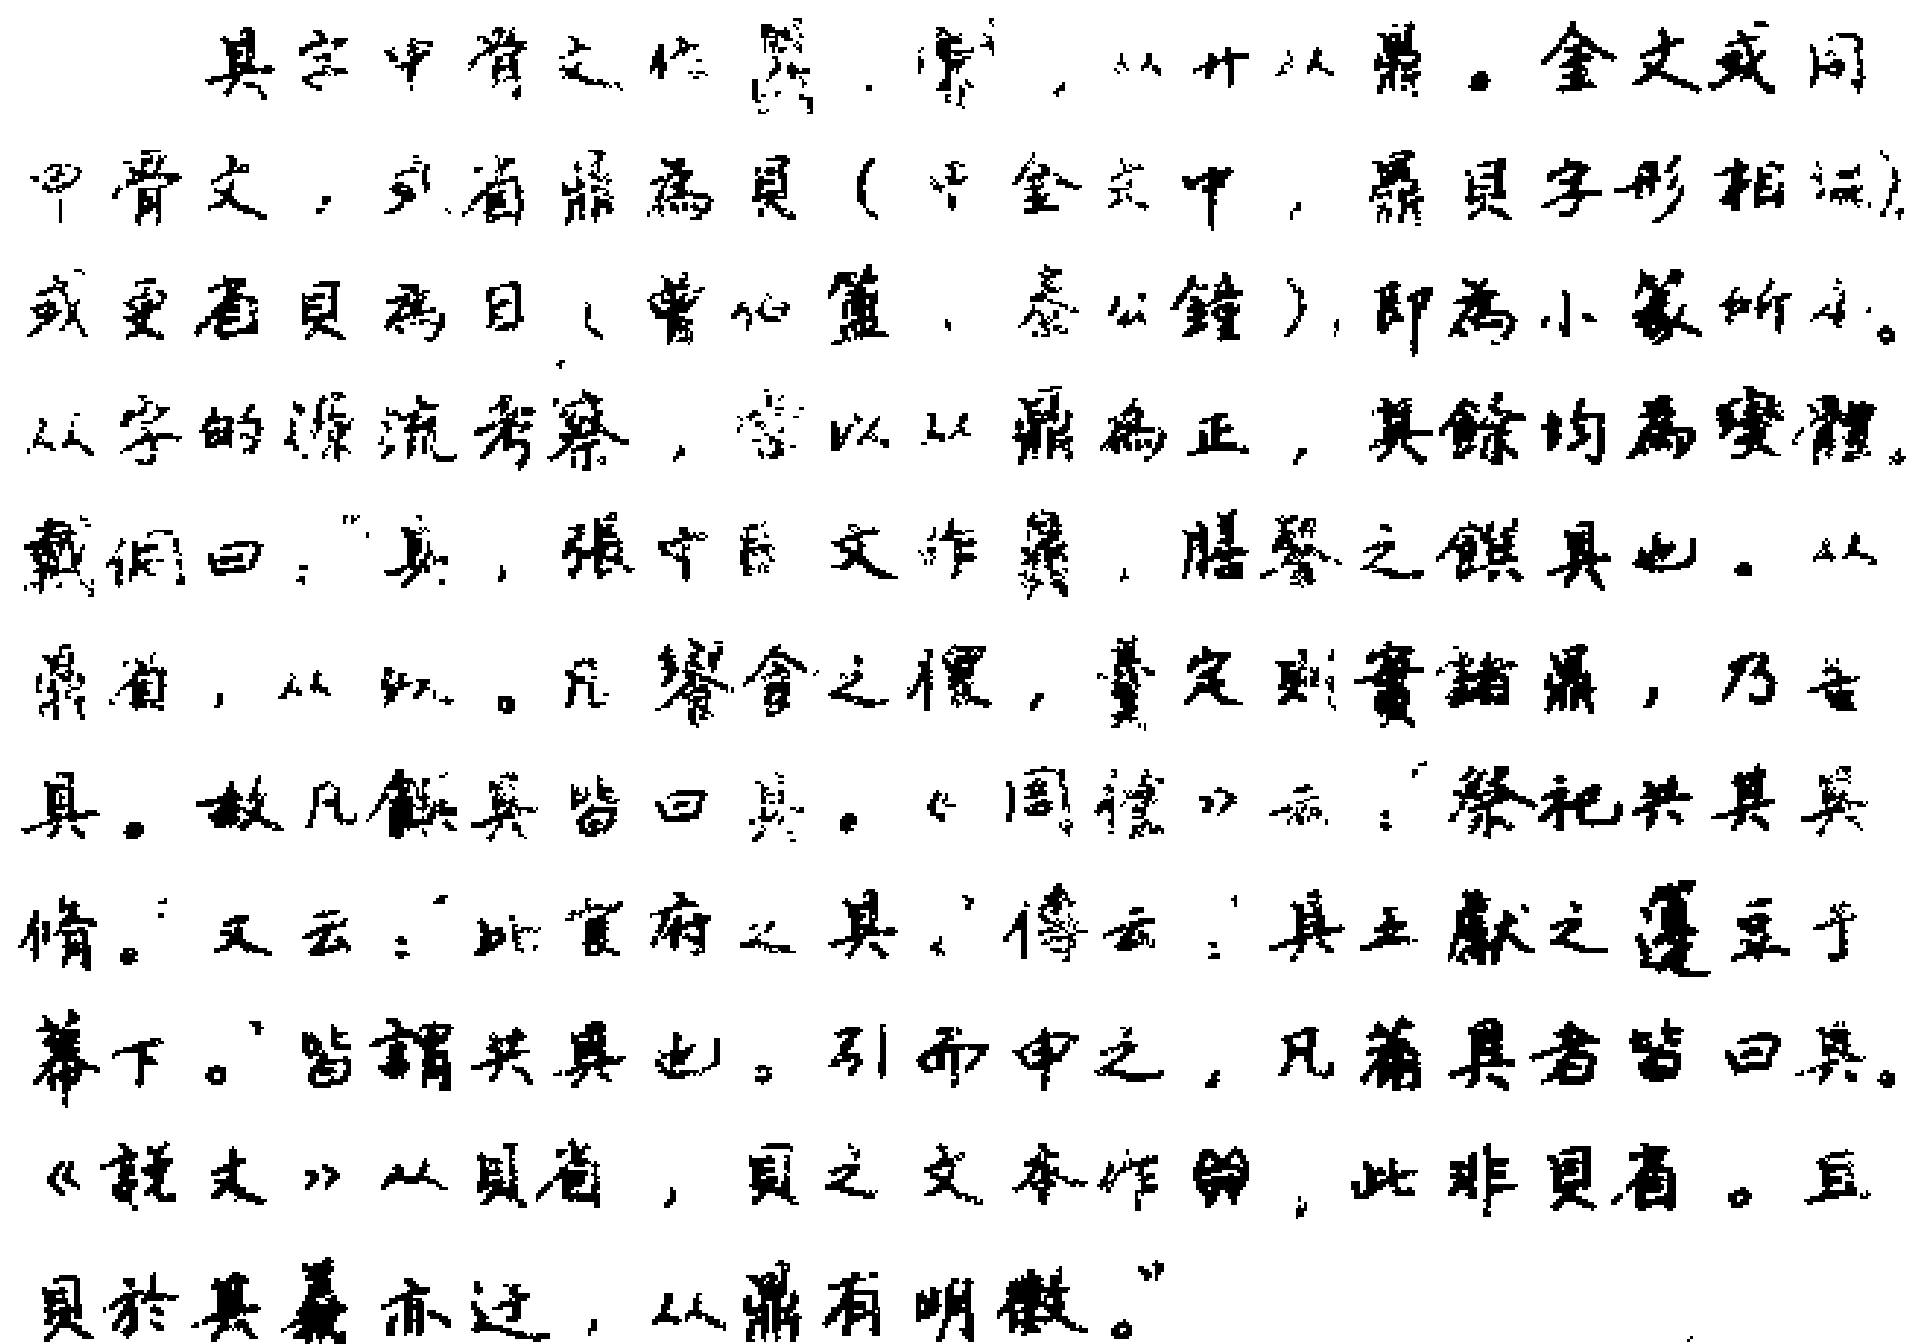 具字甲骨文作、从廾从鼎。金文或同
甲骨文，或省鼎為貝（甲金文中，鼎貝字形相混），
或更省貝為日（曾伯簠、秦公鐘），即為小篆所本。
从字的源流考察，當以从鼎為正，其餘均為變體。
戴侗曰：“具，張中文作，膳羞之饌具也。从
鼎省，从収。凡饗食之禮，羹定則實諸鼎，乃告
具。故凡饌具皆曰具。《周禮》云：‘祭祀共其具
脩。’又云：‘比官府之具。’傳云：‘具五獻之籩豆于
幕下。’皆謂共具也。引而申之，凡備具者皆曰具。
《説文》从貝省，貝之文本作，此非貝省。且
貝於具義亦迂，从鼎有明徵。”